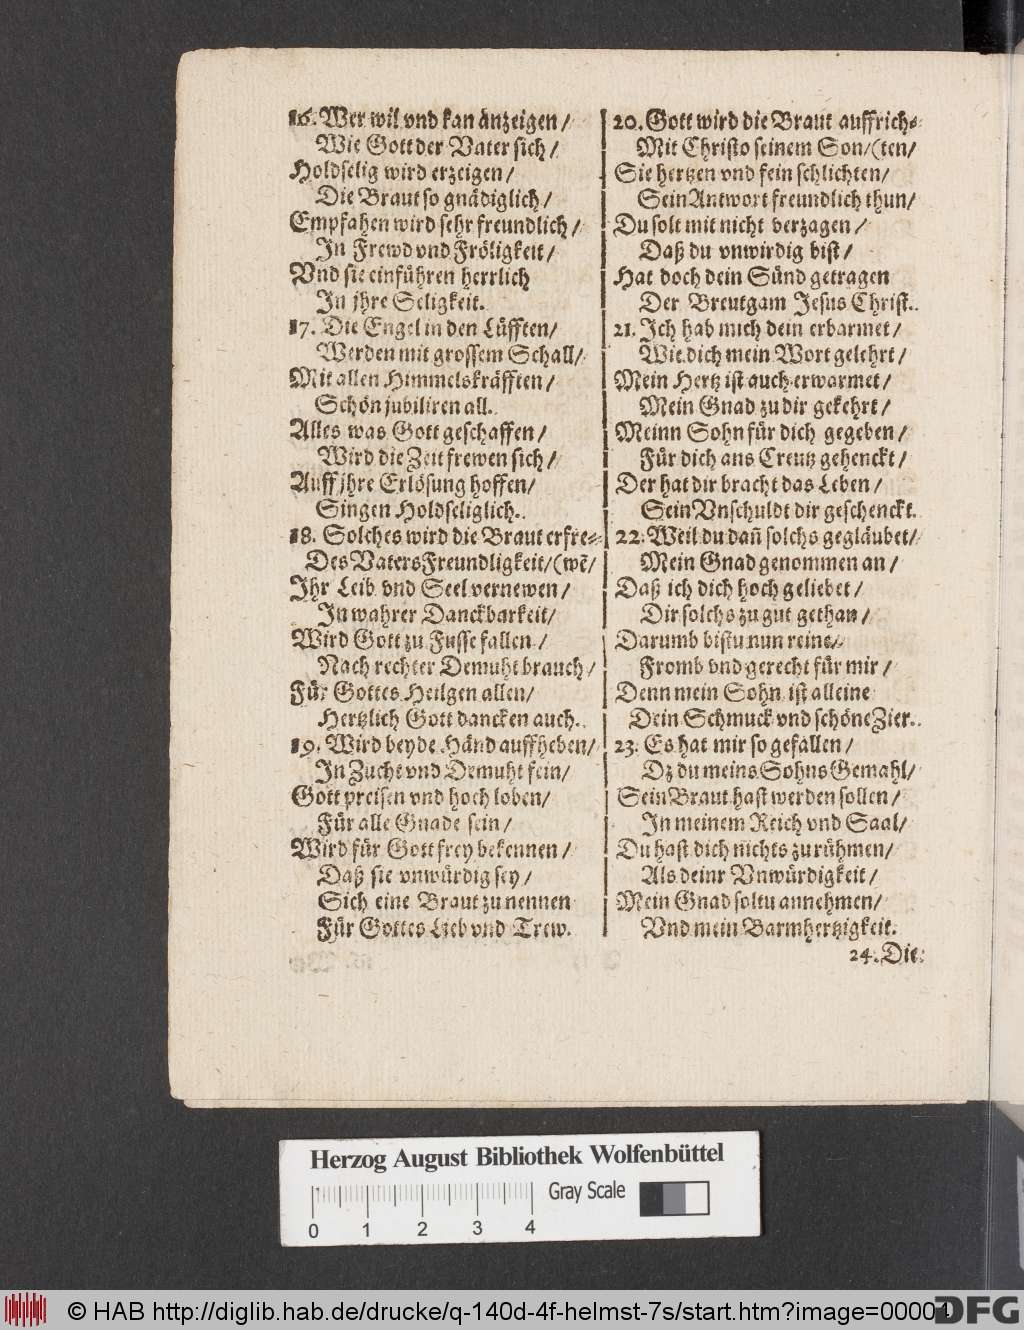 16. Wer wil vnd kan anzeigen /
Wie Gott der Vater sich /
Holdselig wird erzeigen /
Die Braut so gnädiglich /
Empfahen wird sehr freundlich /
In Frewd vnd Fröligkeit /
Vnd sie einführen herrlich
In jhre Seligkeit.
17. Die Engel in den Lüfften /
Werden mit grossem Schall /
Mit allen Himmelskräfften /
Schön jubiliren all.
Alles was Gott geschaffen /
Wird die Zeit frewen sich /
Auff jhre Erlösung hoffen /
Singen Holdseliglich.
18. Solches wird die Braut erfre-
Des Vaters Freundligkeit / (wẽ /
Ihr Leib vnd Seel vernewen /
In wahrer Danckbarkeit /
Wird Gott zu Fusse fallen /
Nach rechter Demuht brauch /
Für Gottes Heilgen allen /
Hertzlich Gott dancken auch.
19. Wird beyde Händ auffheben /
In Zucht vnd Demuht fein /
Gott preisen vnd hoch loben /
Für alle Gnade sein /
Wird für Gott frey bekennen /
Daß sie vnwürdig sey /
Sich eine Braut zu nennen
Für Gottes Lieb vnd Trew.
20. Gott wird die Braut auffrich-
Mit Christo seinem Son / (ten /
Sie hertzen vnd fein schlichten /
Sein Antwort freundlich thun /
Du solt mit nicht verzagen /
Daß du vnwirdig bist /
Hat doch dein Sünd getragen
Der Breutgam Jesus Christ.
21. Ich hab mich dein erbarmet /
Wie dich mein Wort gelehrt /
Mein Hertz ist auch erwarmet /
Mein Gnad zu dir gekehrt /
Meinn Sohn für dich gegeben /
Für dich ans Creutz gehenckt /
Der hat dir bracht das Leben /
Sein Vnschuldt dir geschenckt.
22. Weil du dañ solchs gegläubet /
Mein Gnad genommen an /
Daß ich dich hoch geliebet /
Dir solchs zu gut gethan /
Darumb bistu nun reine /
Fromb vnd gerecht für mir /
Denn mein Sohn ist alleine
Dein Schmuck vnd schöne Zier.
23. Es hat mir so gefallen /
Dz du meins Sohns Gemahl /
Sein Braut hast werden sollen /
In meinem Reich vnd Saal /
Du hast dich nichts zu rühmen /
Als deinr Vnwürdigkeit /
Mein Gnad soltu annehmen /
Vnd mein Barmhertzigkeit.
24. Die
Herzog August Bibliothek Wolfenbüttel
Gray Scale
0 1 2 3 4
© HAB http://diglib.hab.de/drucke/q-140d-4f-helmst-7s/start.htm?image=00004
DFG